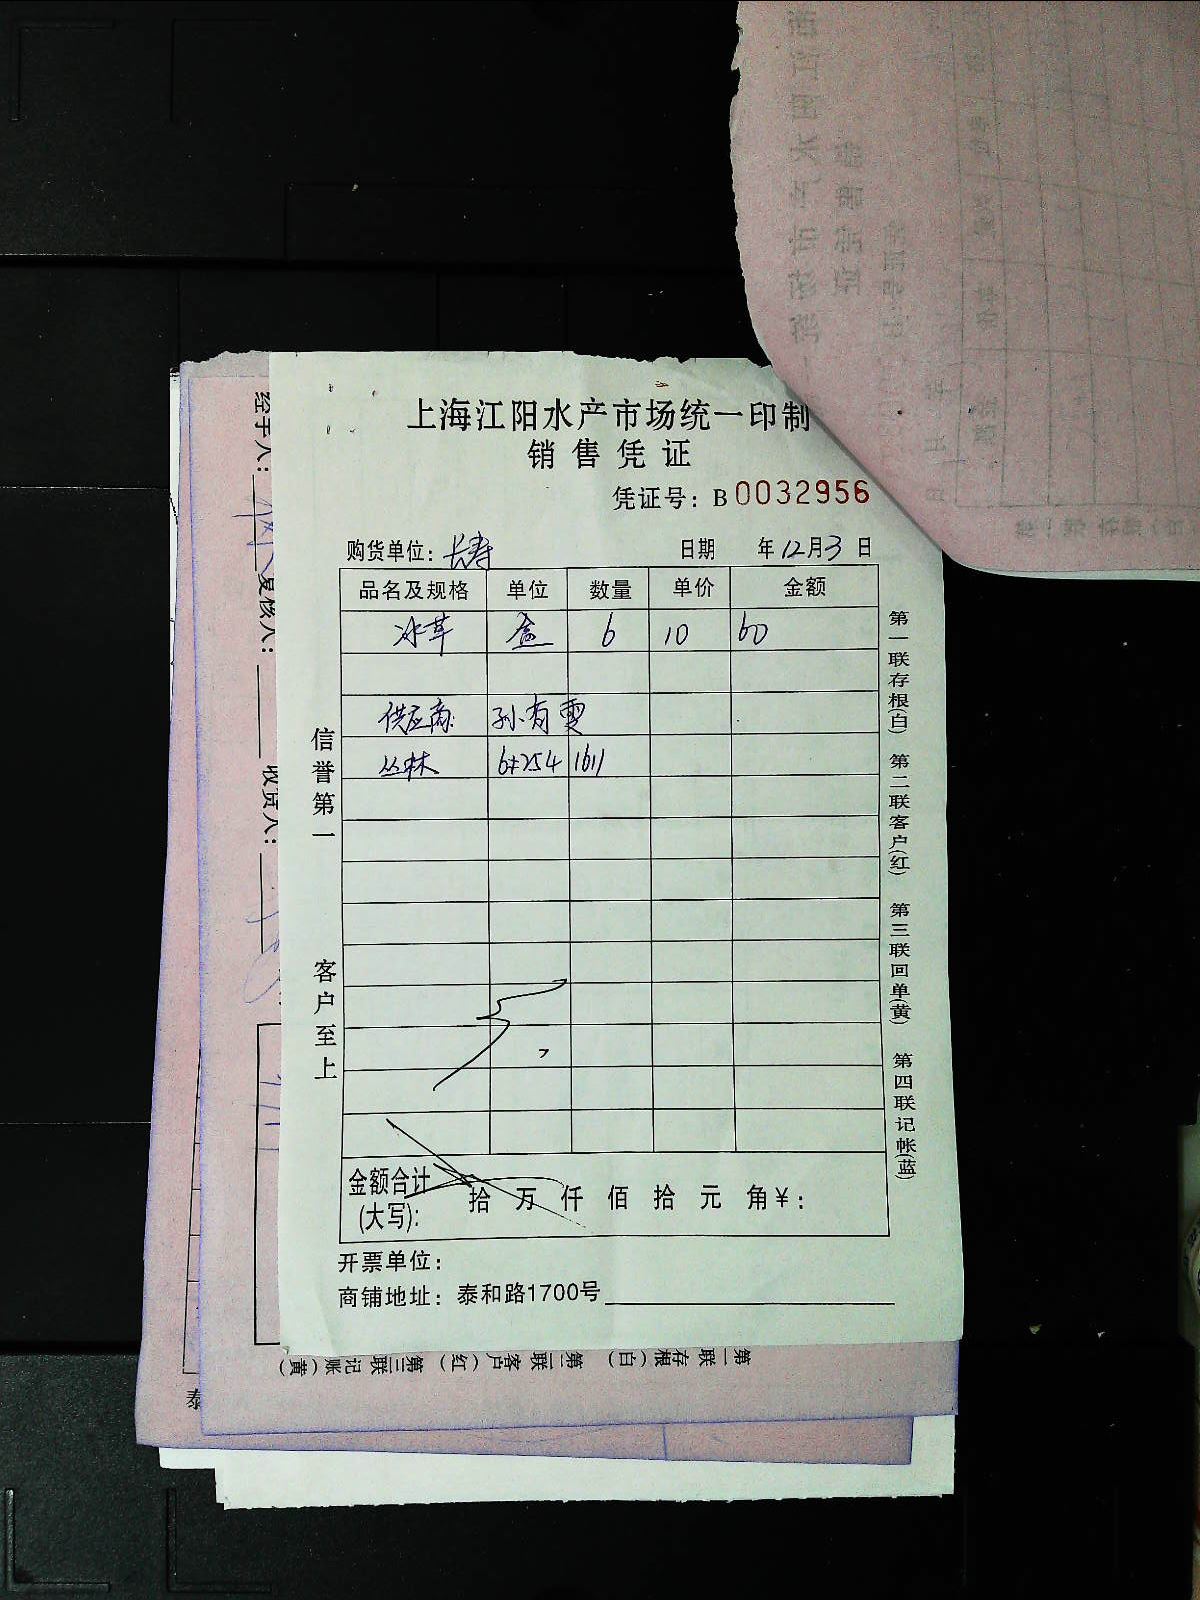 上海江阳水产市场统一印制
销售凭证
凭证号：B0032956
购货单位：长寿 日期 年12月3日
品名及规格 单位 数量 单价 金额
冰草 盒 6 10 60
供应商 孙有雯
丛林 6#254 1611
金额合计(大写)： 拾 万 仟 佰 拾 元 角￥：
开票单位：
商铺地址：泰和路1700号
信誉第一
客户至上
第一联存根(白) 第二联客户(红) 第三联回单(黄) 第四联记帐(蓝)
经手人：
复核人：
收货人：
第一联存根（白） 第二联客户（红） 第三联记账（黄）
泰